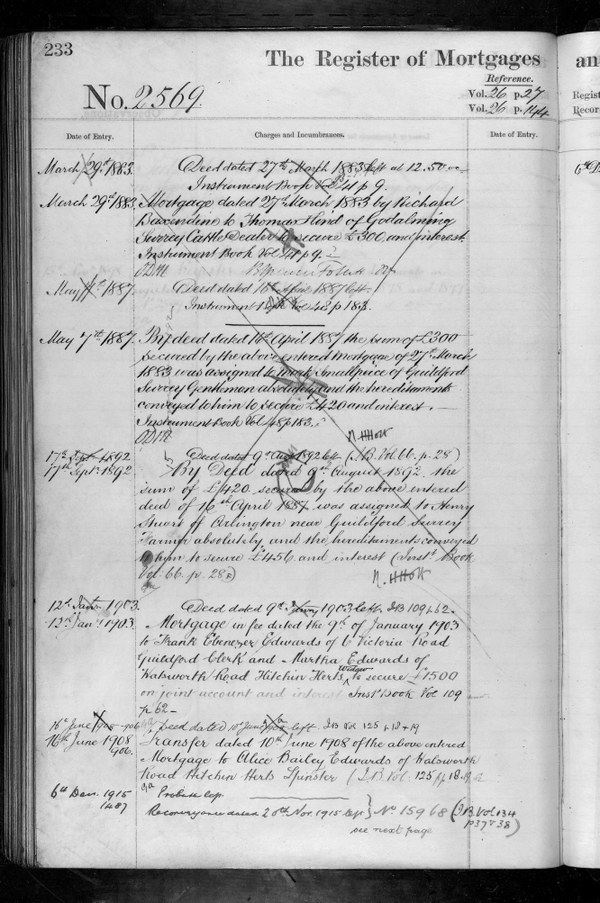 233
The Register of Mortgages
an
No. 2569.
Reference.
Vol. 26 p. 27
Vol. 26 p. 144
Regist
Recor
Date of Entry.
Charges and Incumbrances.
Date of Entry.
March 29th 1883.
Deed dated 27th March 1883 left at 12.50
Instrument Book Vol 41 p 9.
March 29th 1883.
Mortgage dated 27th March 1883 by Richard
Baxendine to Thomas Hind of Godalming
Surrey Cattle Dealer to secure £300 and interest.
Instrument Book Vol 41 p 9.
May 1887
Deed dated 16th April 1887 left.
Instrument Book Vol 48 p 183.
May 7th 1887.
By deed dated 16th April 1887 the sum of £300
secured by the above entered mortgage of 27th March
1883 was assigned to Mark Smallpiece of Guildford
Surrey Gentleman absolutely and the hereditaments
conveyed to him to secure £420 and interest.
Instrument Book Vol 48 p 183.
17th Sept 1892
Deed dated 9th Aug 1892 left (I.B. Vol. 66. p. 28)
17th Septr 1892
By Deed dated 9th August 1892 the
sum of £420 secured by the above entered
deed of 16th April 1887 was assigned to Henry
Stuart of Arlington near Guildford Surrey
Farmer absolutely and the hereditaments conveyed
to him to secure £456 and interest (Inst. Book
Vol 66. p 28)
12th Jany 1903.
Deed dated 9th Jany 1903 left. I.B 109 p 62.
12th Jany 1903.
Mortgage in fee dated the 9th of January 1903
to Frank Ebenezer Edwards of 6 Victoria Road
Guildford Clerk and Martha Edwards of
Walsworth Road Hitchin Herts Widow to secure £1500
on joint account and interest Inst Book Vol 109
p 62 –
16th June 1908
Deed dated 10th June 1908 left. I.B Vol 125 p 18 & 19
16th June 1908
906.
Transfer dated 10th June 1908 of the above entered
Mortgage to Alice Bailey Edwards of Walsworth
Road Hitchin Herts Spinster (I.B. Vol. 125 pp 18 & 19
6th Dec. 1915
1487
Probate left
Reconveyance dated 26th Nov. 1915 left } No 15968 (I.B. Vol 134
p 37 & 38)
see next page
6th D